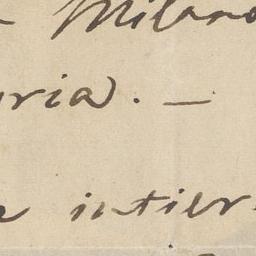 Milano
uria. —
intier